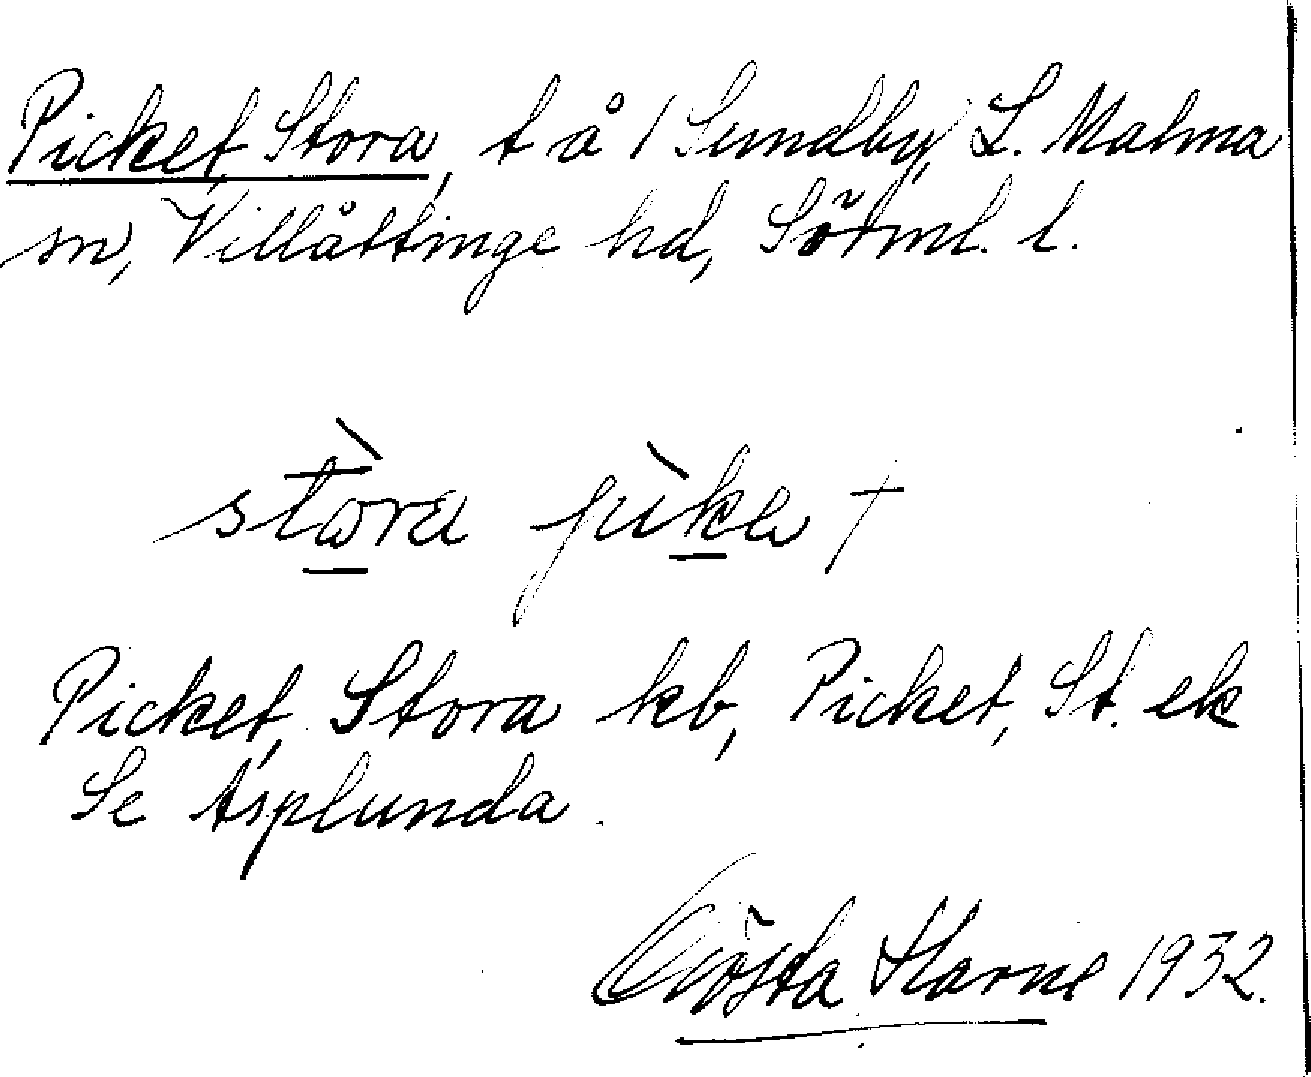 Picket, Stora, t å 1 Sundby, L. Malma
sn, Villåttinge hd, Sörml. l.
stòra pìka †
Picket, Stora kb, Picket, St. ek
Se Asplunda.
Gösta Harne 1932.